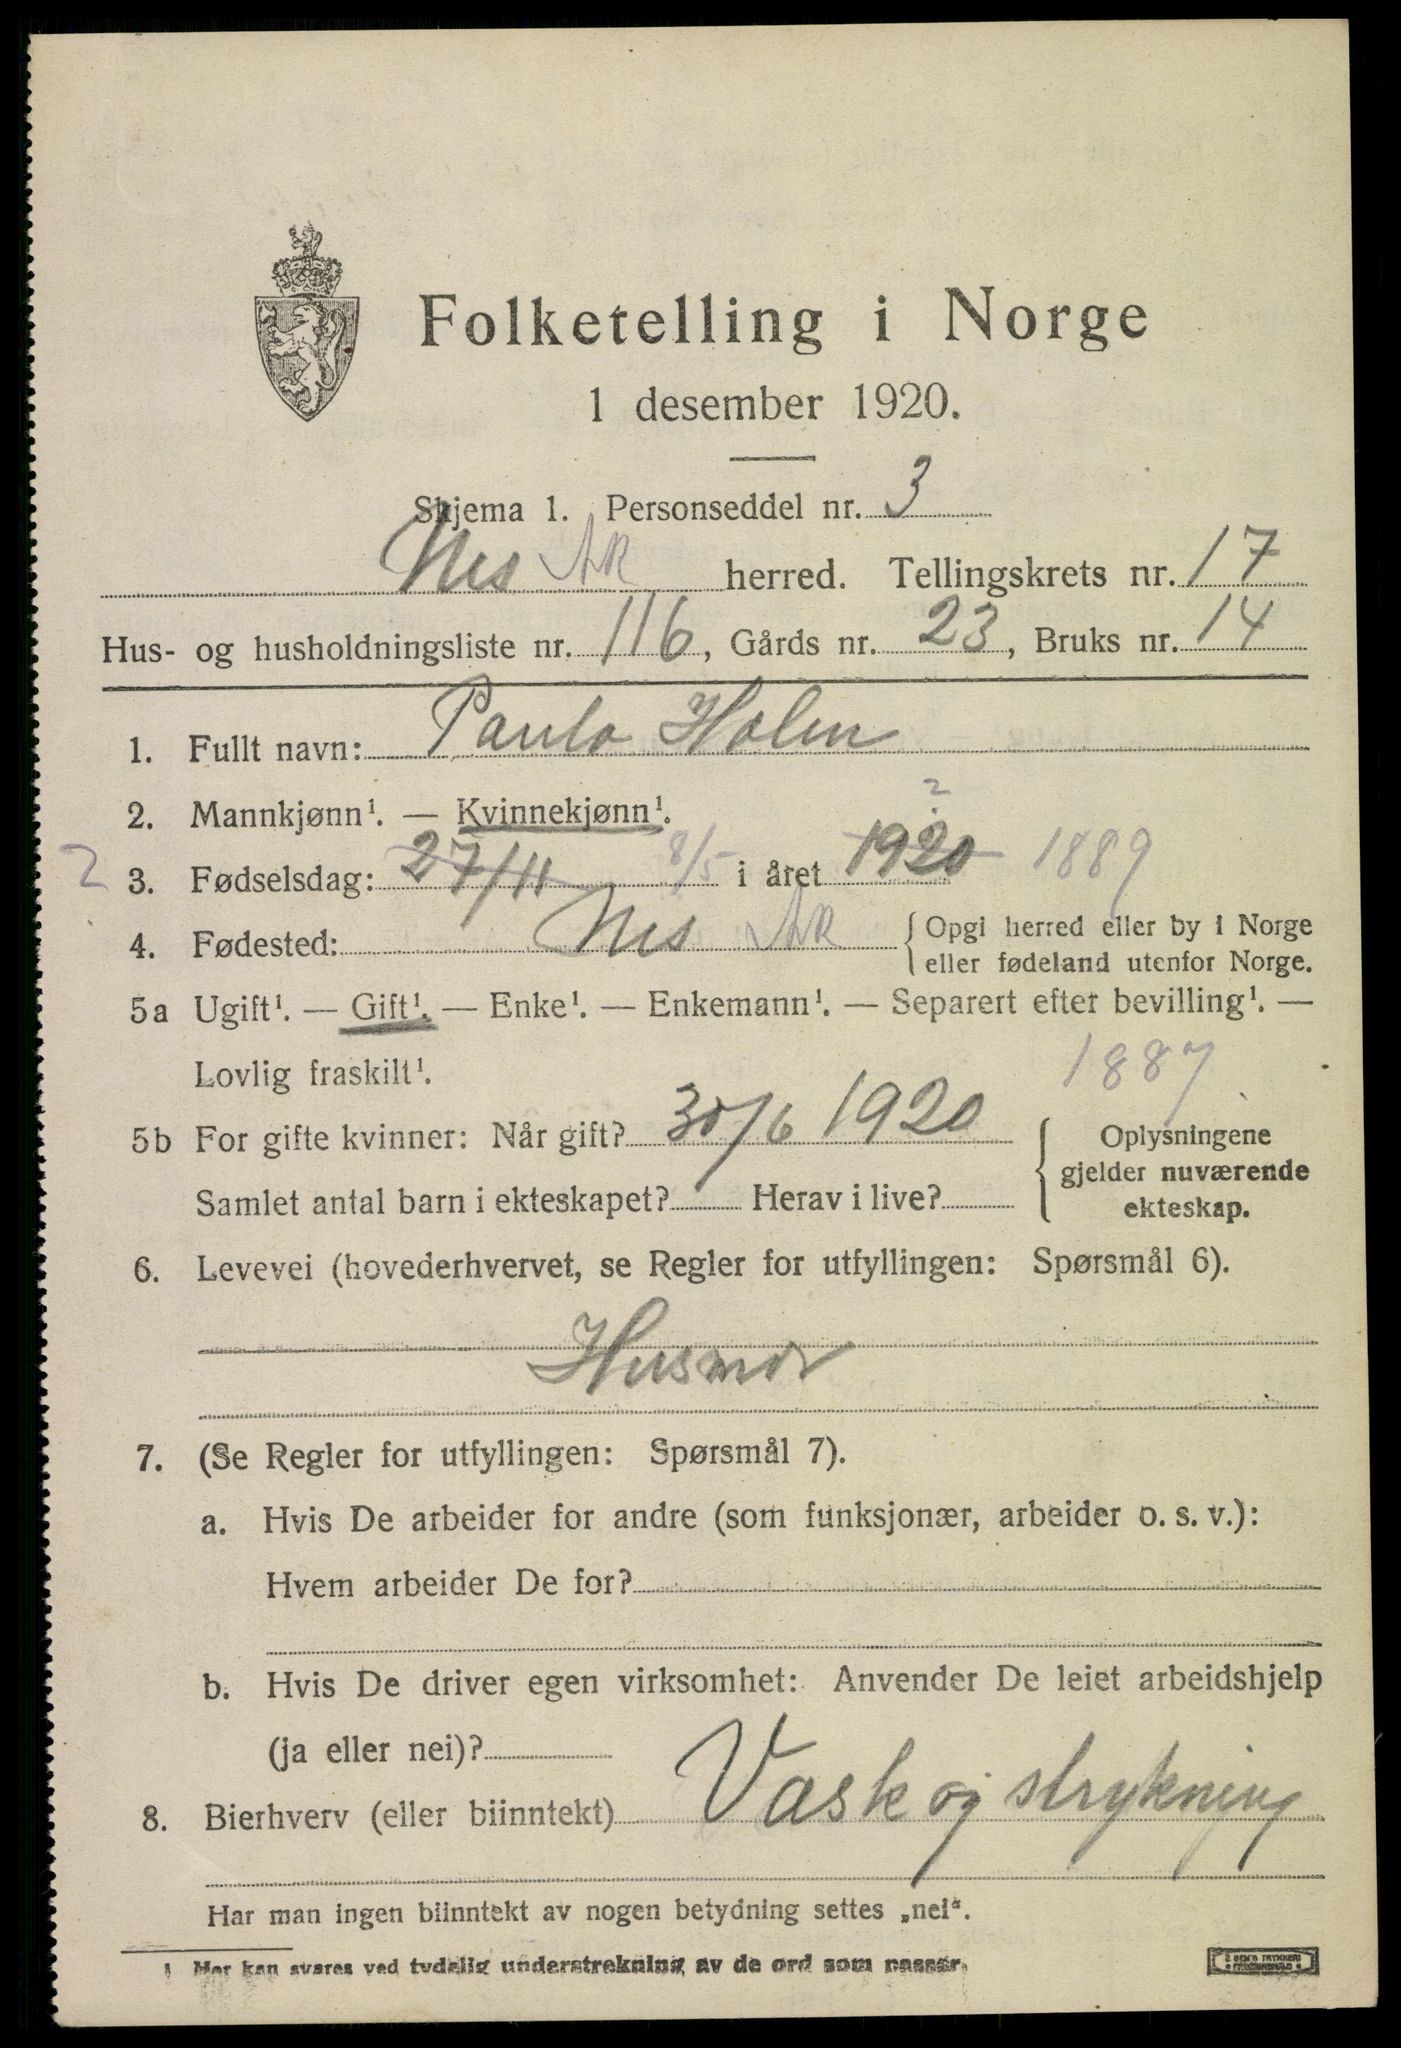 Folketelling i Norge
1 desember 1920.
Skjema 1. Personseddel nr. 3
Nes AK herred. Tellingskrets nr. 17
Hus- og husholdningsliste nr. 116, Gårds nr. 23, Bruks nr. 14
1. Fullt navn: Paula Holm
2. Mannkjønn¹. — Kvinnekjønn¹.
?
2 3. Fødselsdag: 27/11 8/5 i året 1920 1889
4. Fødested: Nes AK { Opgi herred eller by i Norge
eller fødeland utenfor Norge.
5a Ugift¹. — Gift¹. — Enke¹. — Enkemann¹. — Separert efter bevilling¹. —
Lovlig fraskilt¹. 1887
5b For gifte kvinner: Når gift? 30/6 1920 { Oplysningene
gjelder nuværende
Samlet antal barn i ekteskapet? Herav i live? ekteskap.
6. Levevei (hovederhvervet, se Regler for utfyllingen: Spørsmål 6).
Husmor
7. (Se Regler for utfyllingen: Spørsmål 7).
a. Hvis De arbeider for andre (som funksjonær, arbeider o. s. v.):
Hvem arbeider De for?
b. Hvis De driver egen virksomhet: Anvender De leiet arbeidshjelp
(ja eller nei)?
8. Bierhverv (eller biinntekt) Vask og strykning
Har man ingen biinntekt av nogen betydning settes „nei“.
1 Her kan svares ved tydelig understrekning av de ord som passer.